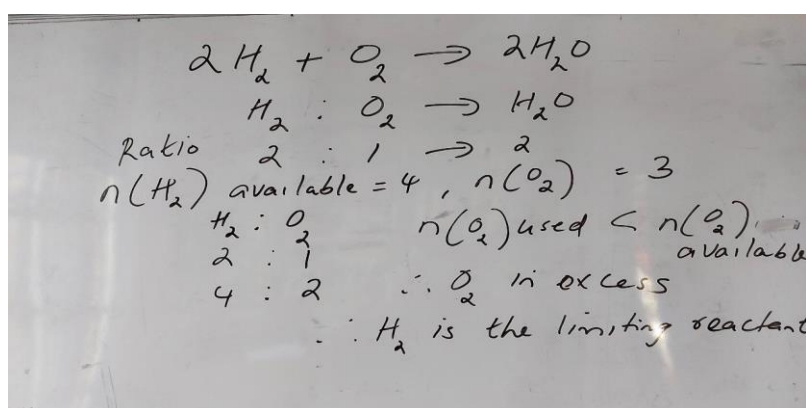 2H₂ + O₂ → 2H₂O
H₂ : O₂ → H₂O
Ratio 2 : 1 → 2
n(H₂) available = 4, n(O₂) = 3
H₂ : O₂ n(O₂) used < n(O₂)
2 : 1 available
4 : 2 ∴ O₂ in excess
∴ H₂ is the limiting reactant